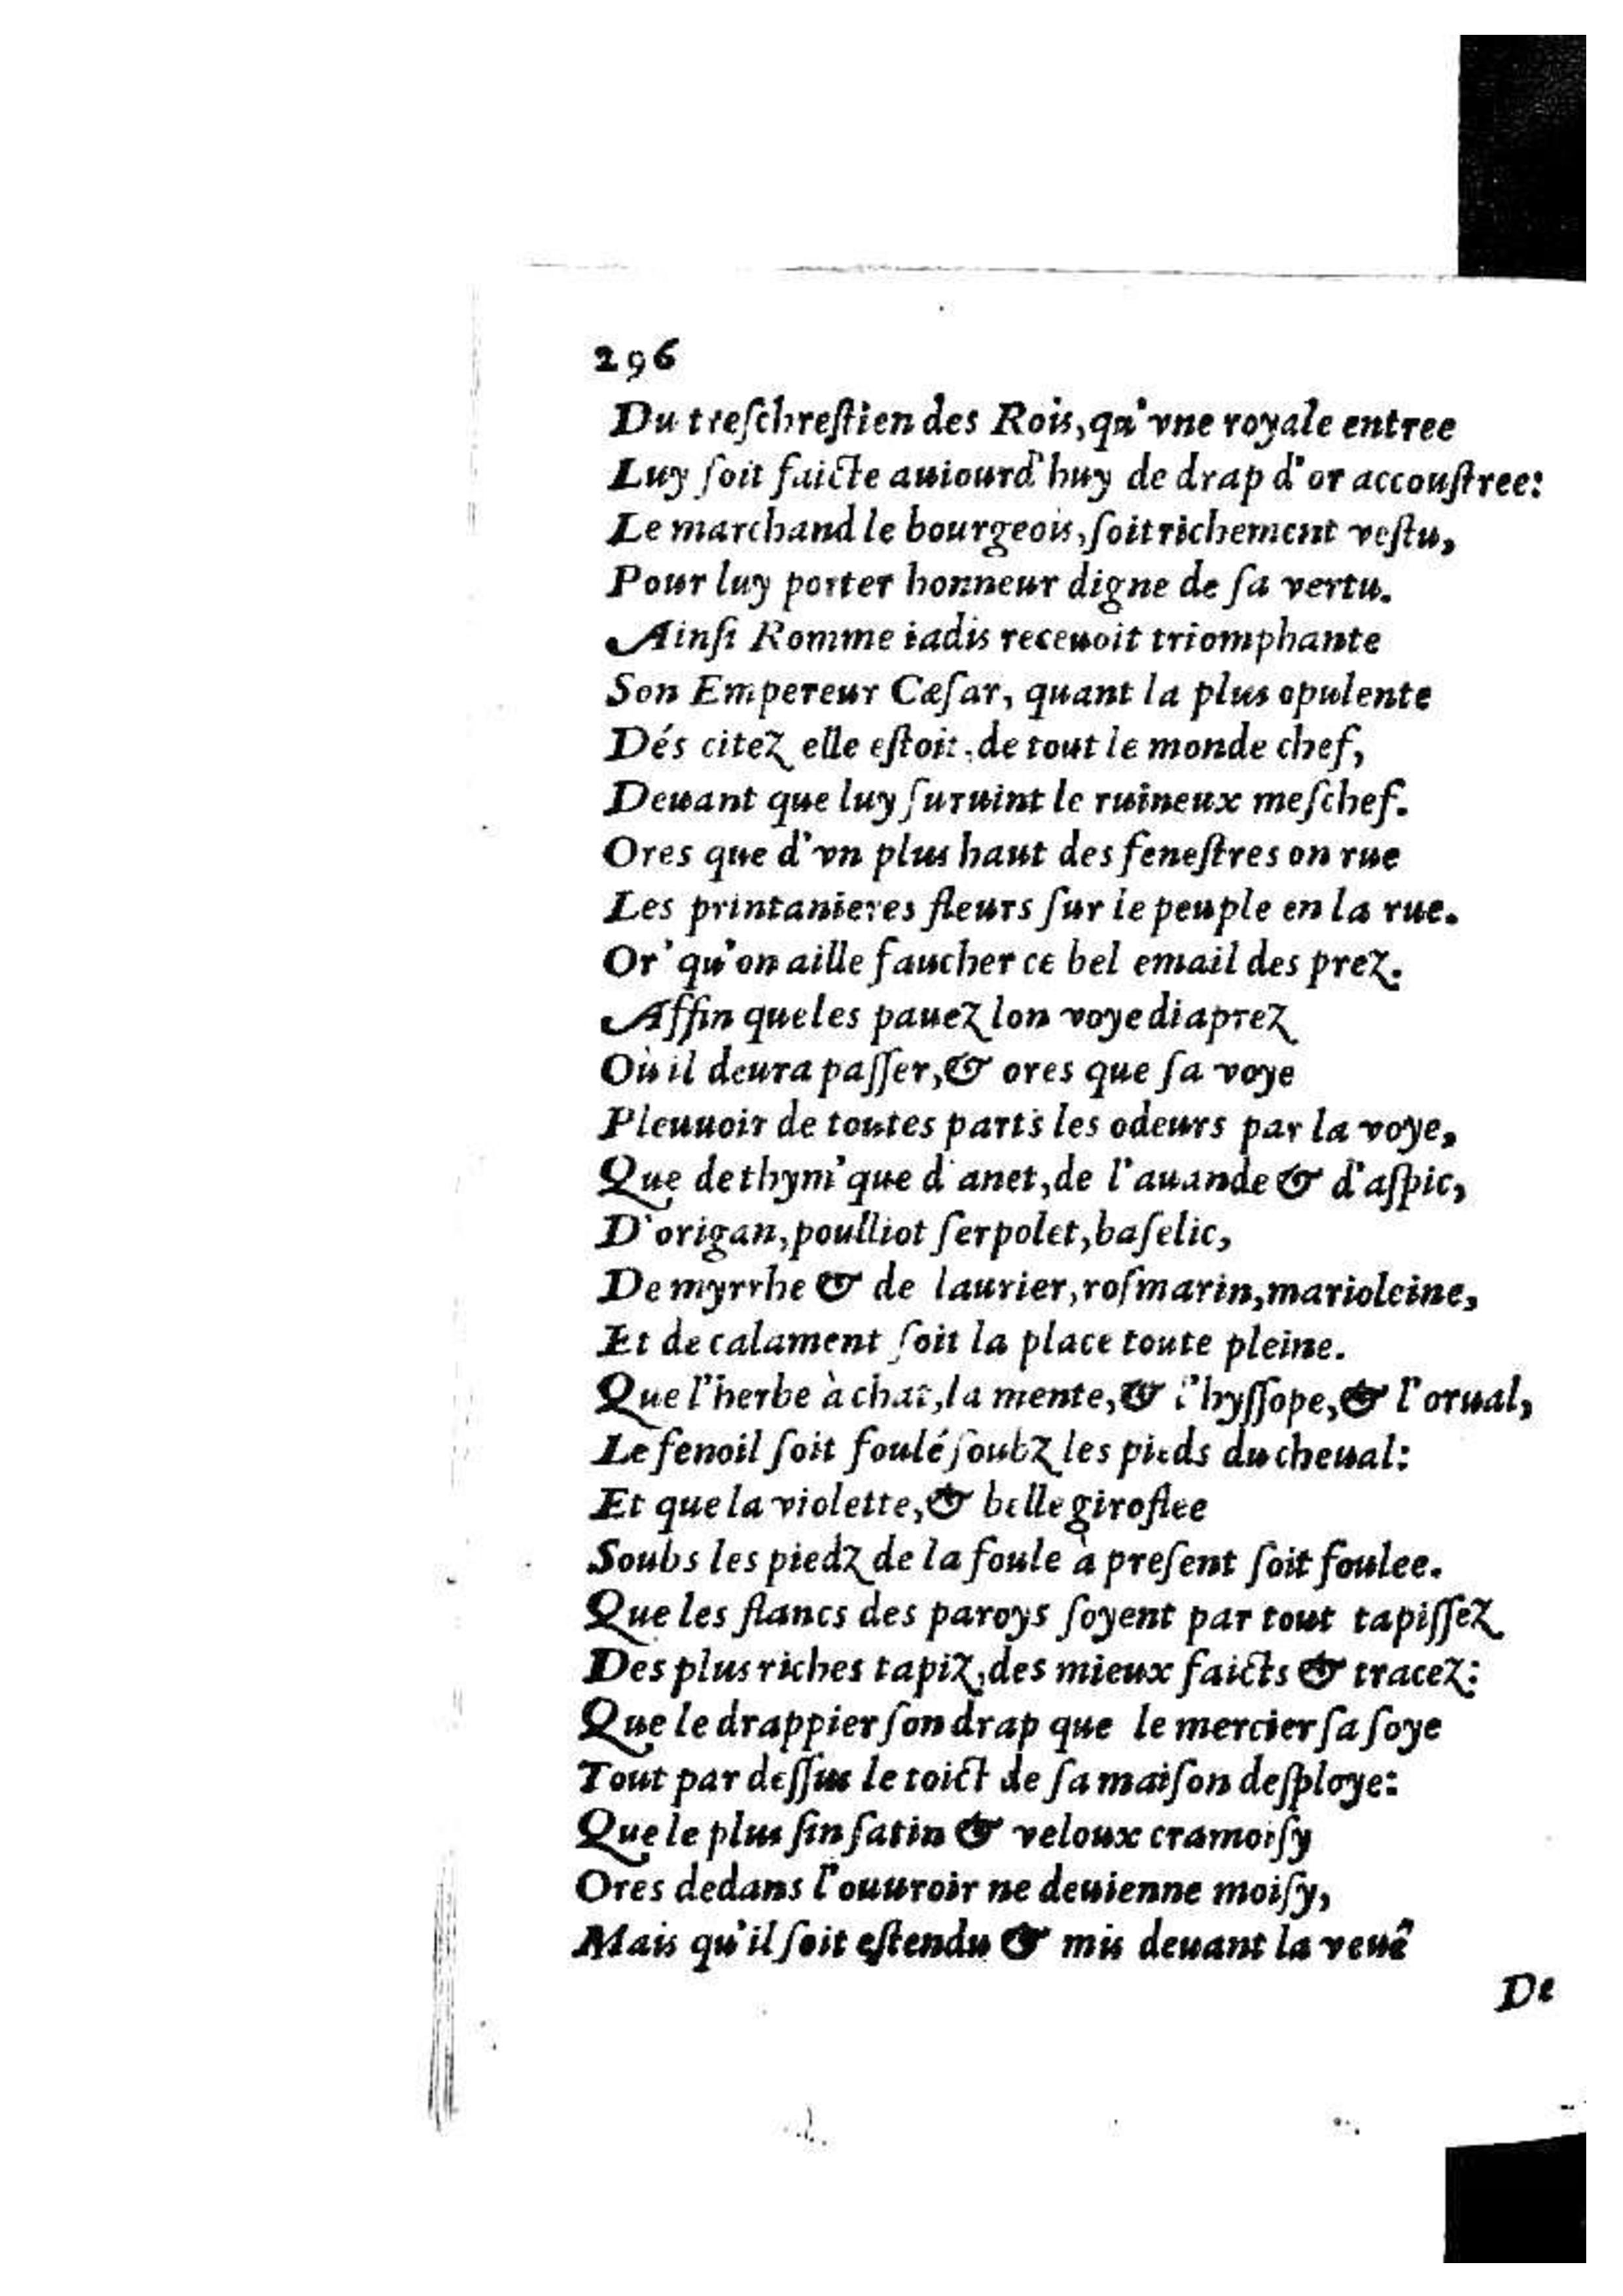 296
Du treſchreſtien des Rois, qu'vne royale entree
Luy ſoit faicte auiourd'huy de drap d'or accouſtree:
Le marchand le bourgeois, ſoit richement veſtu,
Pour luy porter honneur digne de ſa vertu.
Ainſi Romme iadis receuoit triomphante
Son Empereur Cæſar, quant la plus opulente
Dés citez elle eſtoit, de tout le monde chef,
Deuant que luy ſuruint le ruineux meſchef.
Ores que d'vn plus haut des feneſtres on rue
Les printanieres fleurs ſur le peuple en la rue.
Or' qu'on aille faucher ce bel email des prez.
Affin que les pauez lon voye diaprez
Où il deura paſſer, & ores que ſa voye
Pleuuoir de toutes parts les odeurs par la voye,
Que de thym' que d'anet, de l'auande & d'aſpic,
D'origan, poulliot ſerpolet, baſelic,
De myrrhe & de laurier, roſmarin, marioleine,
Et de calament ſoit la place toute pleine.
Que l'herbe à chat, la mente, & l'hyſſope, & l'orual,
Le fenoil ſoit foulé ſoubz les pieds du cheual:
Et que la violette, & belle giroflee
Soubs les piedz de la foule à preſent ſoit foulee.
Que les flancs des paroys ſoyent par tout tapiſſez
Des plus riches tapiz, des mieux faicts & tracez:
Que le drappier ſon drap que le mercier ſa ſoye
Tout par deſſus le toict de ſa maiſon deſploye:
Que le plus fin ſatin & veloux cramoiſy
Ores dedans l'ouuroir ne deuienne moiſy,
Mais qu'il ſoit eſtendu & mis deuant la veuê
De